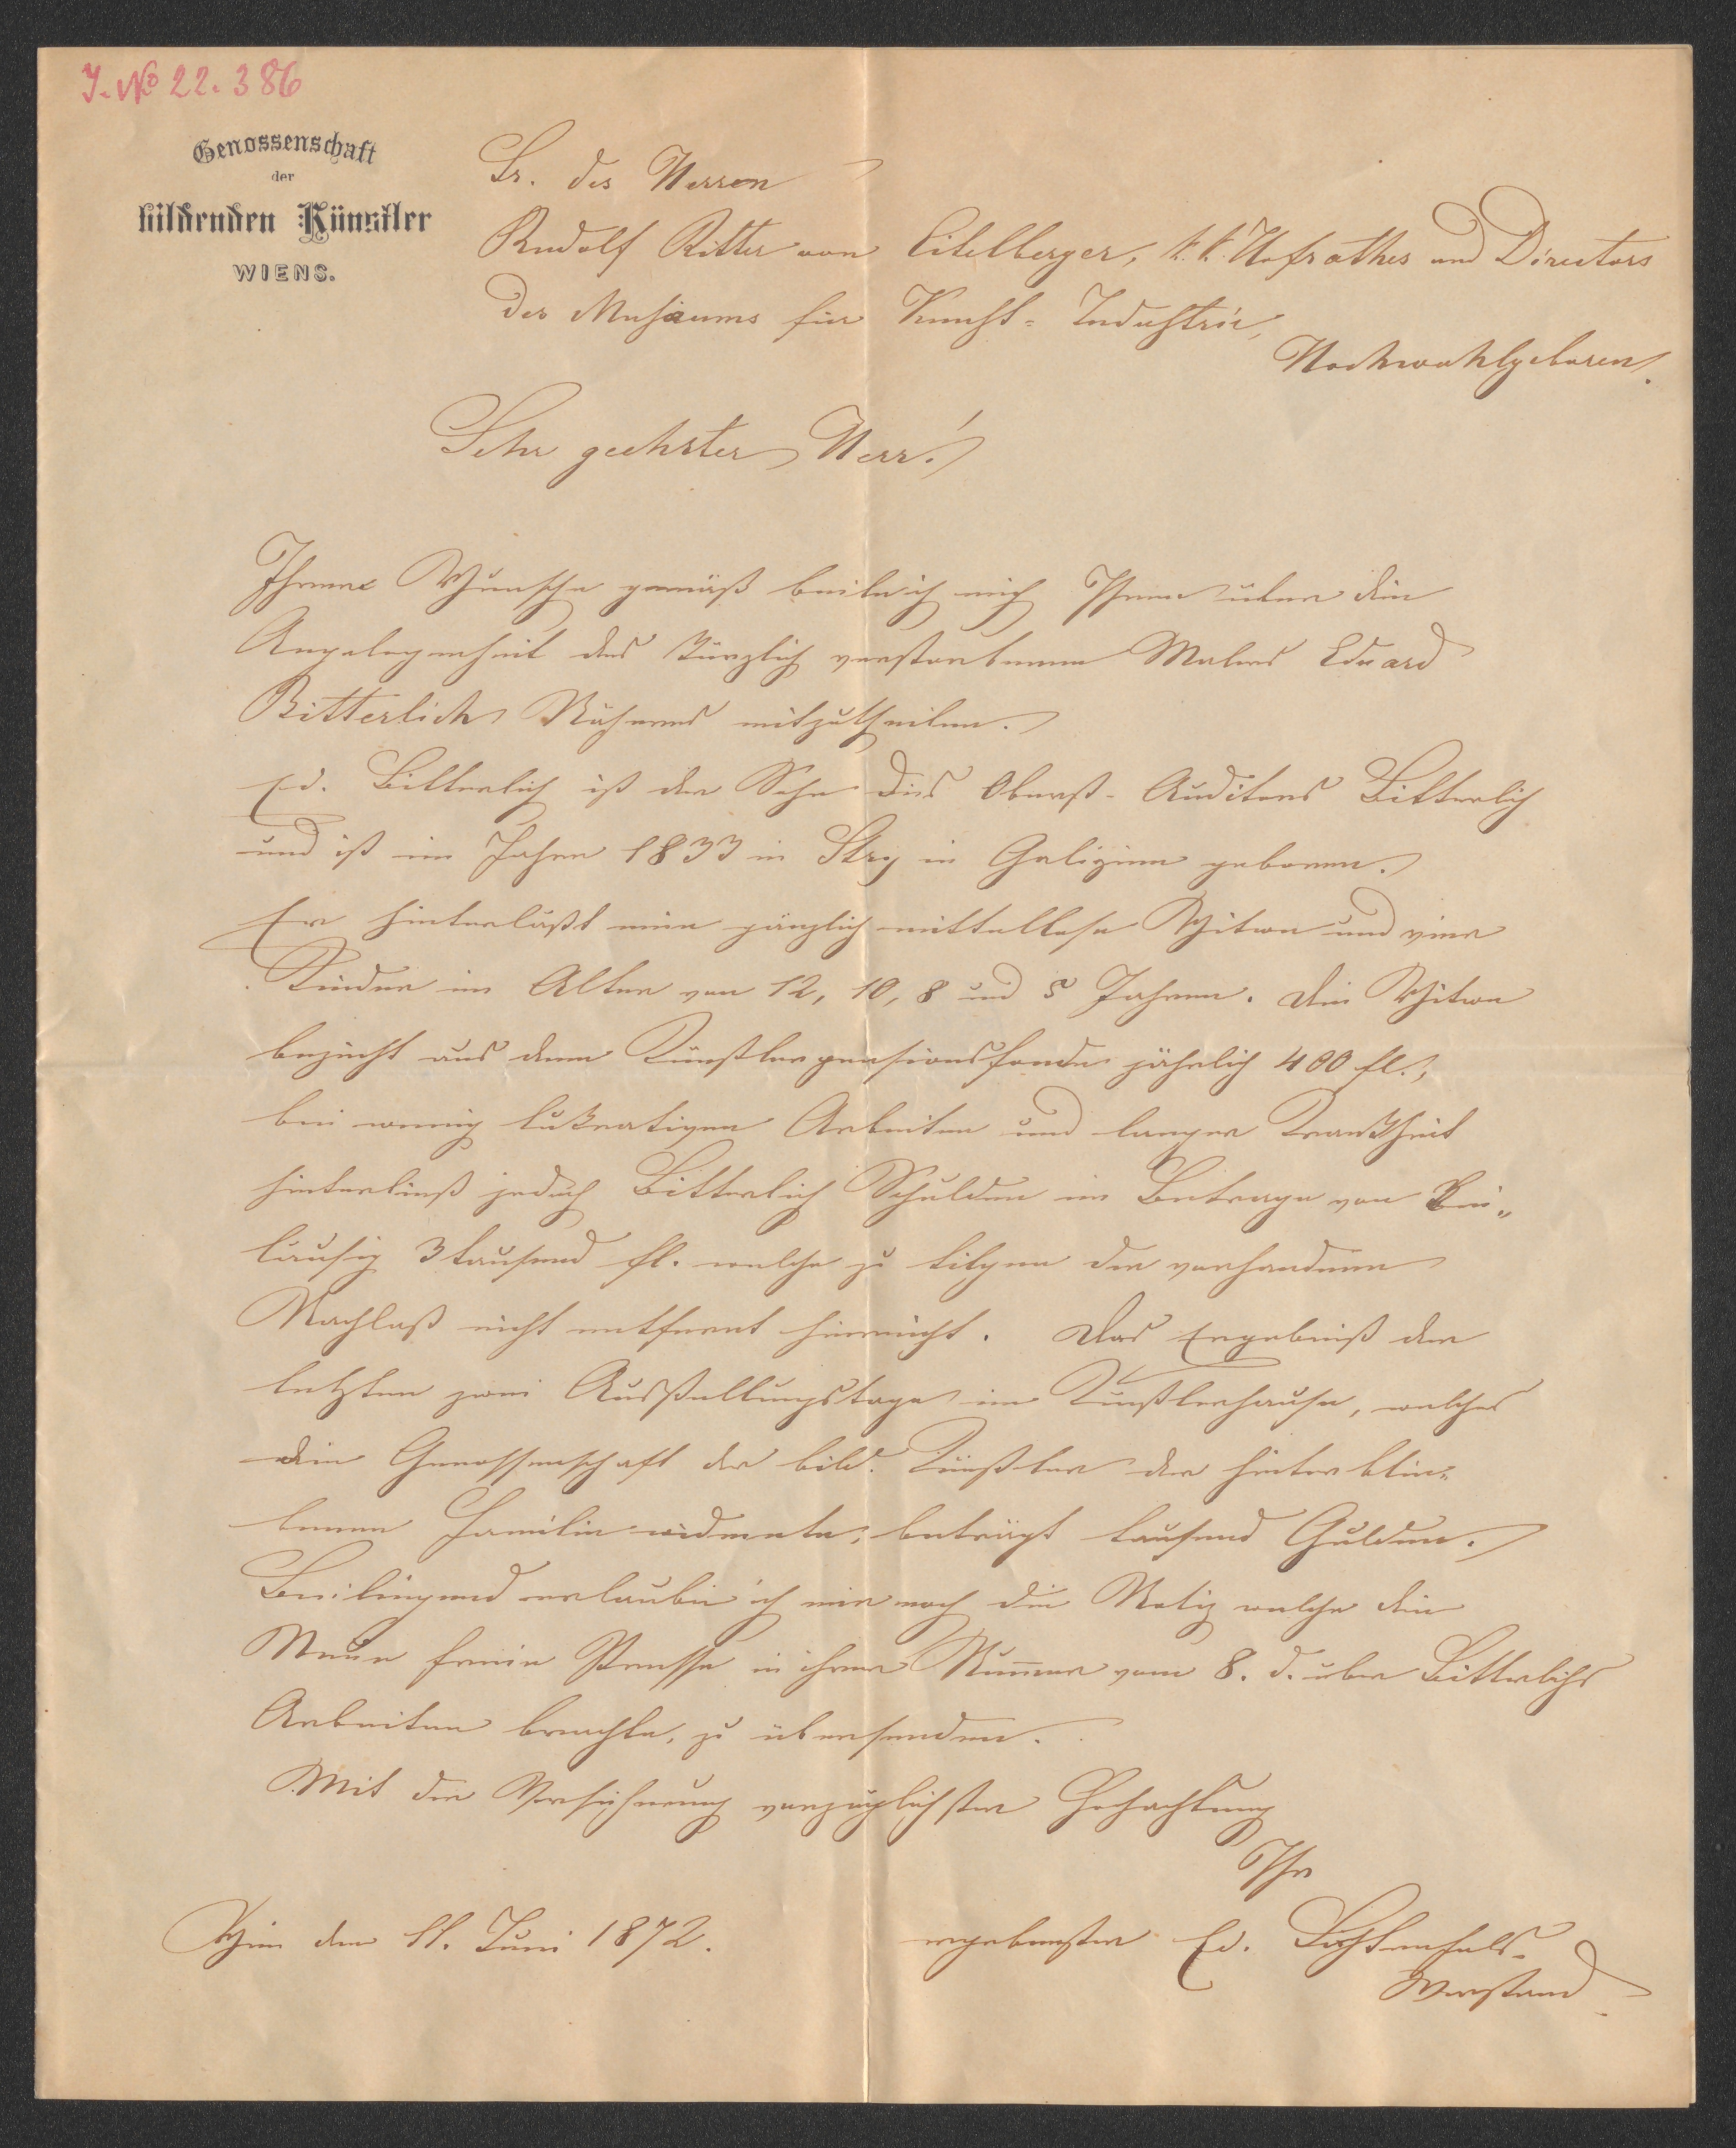 J. No 22.386
Genossenschaft
der
bildenden Künstler
WIENS.
Sr. des Herren
Rudolf Ritter von Eitelberger, k. k. Hofrathes und Directors
des Musäums für Kunst-Industrie,
Hochwohlgeboren.
Sehr geehrter Herr!
Ihrem Wunsche gemäß beile ich mich Ihnen über die
Angelegenheit des kürzlich verstorbenen Malers Eduard
Bitterlich Näheres mitzutheilen.
Ed. Bitterlich ist der Sohn des Oberst-Auditors Bitterlich
und ist im Jahre 1833 in Stry in Galizien geboren.
Er hinterläßt eine gänzlich mittellose Witwe und vier
Kinder im Alter von 12, 10, 8 und 5 Jahren. Die Witwe
bezieht aus dem Künstlerpensionsfonde jährlich 400 fl.,
bei wenig lukrativen Arbeiten und langer Krankheit
hinterließ jedoch Bitterlich Schulden im Betrage von bei„
läufig 3 tausend fl. welche zu tilgen der vorhandene
Nachlaß nicht entfernt hinreicht. Das Ergebniß der
letzten zwei Ausstellungstage im Künstlerhause, welches
die Genossenschaft der bild. Künstler der hinterblie„
benen Familie widmete, beträgt tausend Gulden.
Beiliegend erlaube ich mir noch die Notiz welche die
Neue freie Presse in ihrer Num̅er vom 8. d. über Bitterlichs
Arbeiten brachte, zu übersenden.
Mit der Versicherung vorzüglichster Hochachtung
Ihr
Wien den 11. Juni 1872.
ergebenster Ed. Lichtenfels
Vorstand